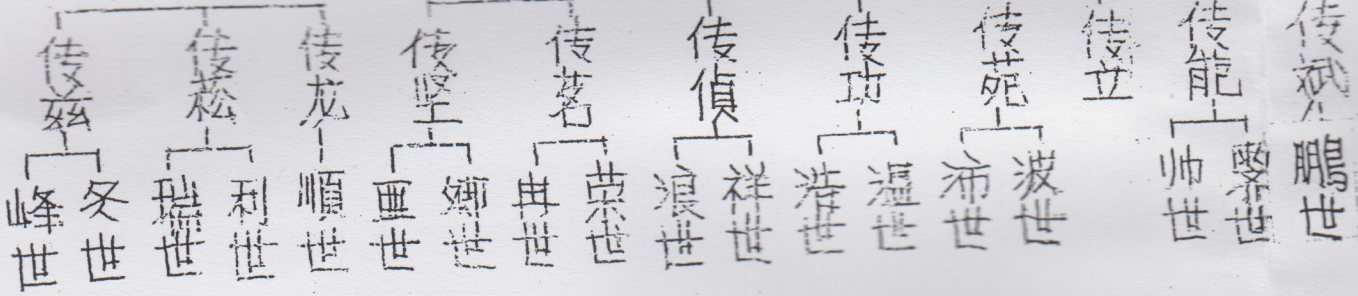 传兹 传松 传龙 传坚 传茗 传偵 传功 传苑 传立 传能 传斌
峰世 冬世 瑞世 利世 順世 世 世 冉世 荣世 浪世 祥世 浩世 温世 沛世 波世 帅世 世 鵬世